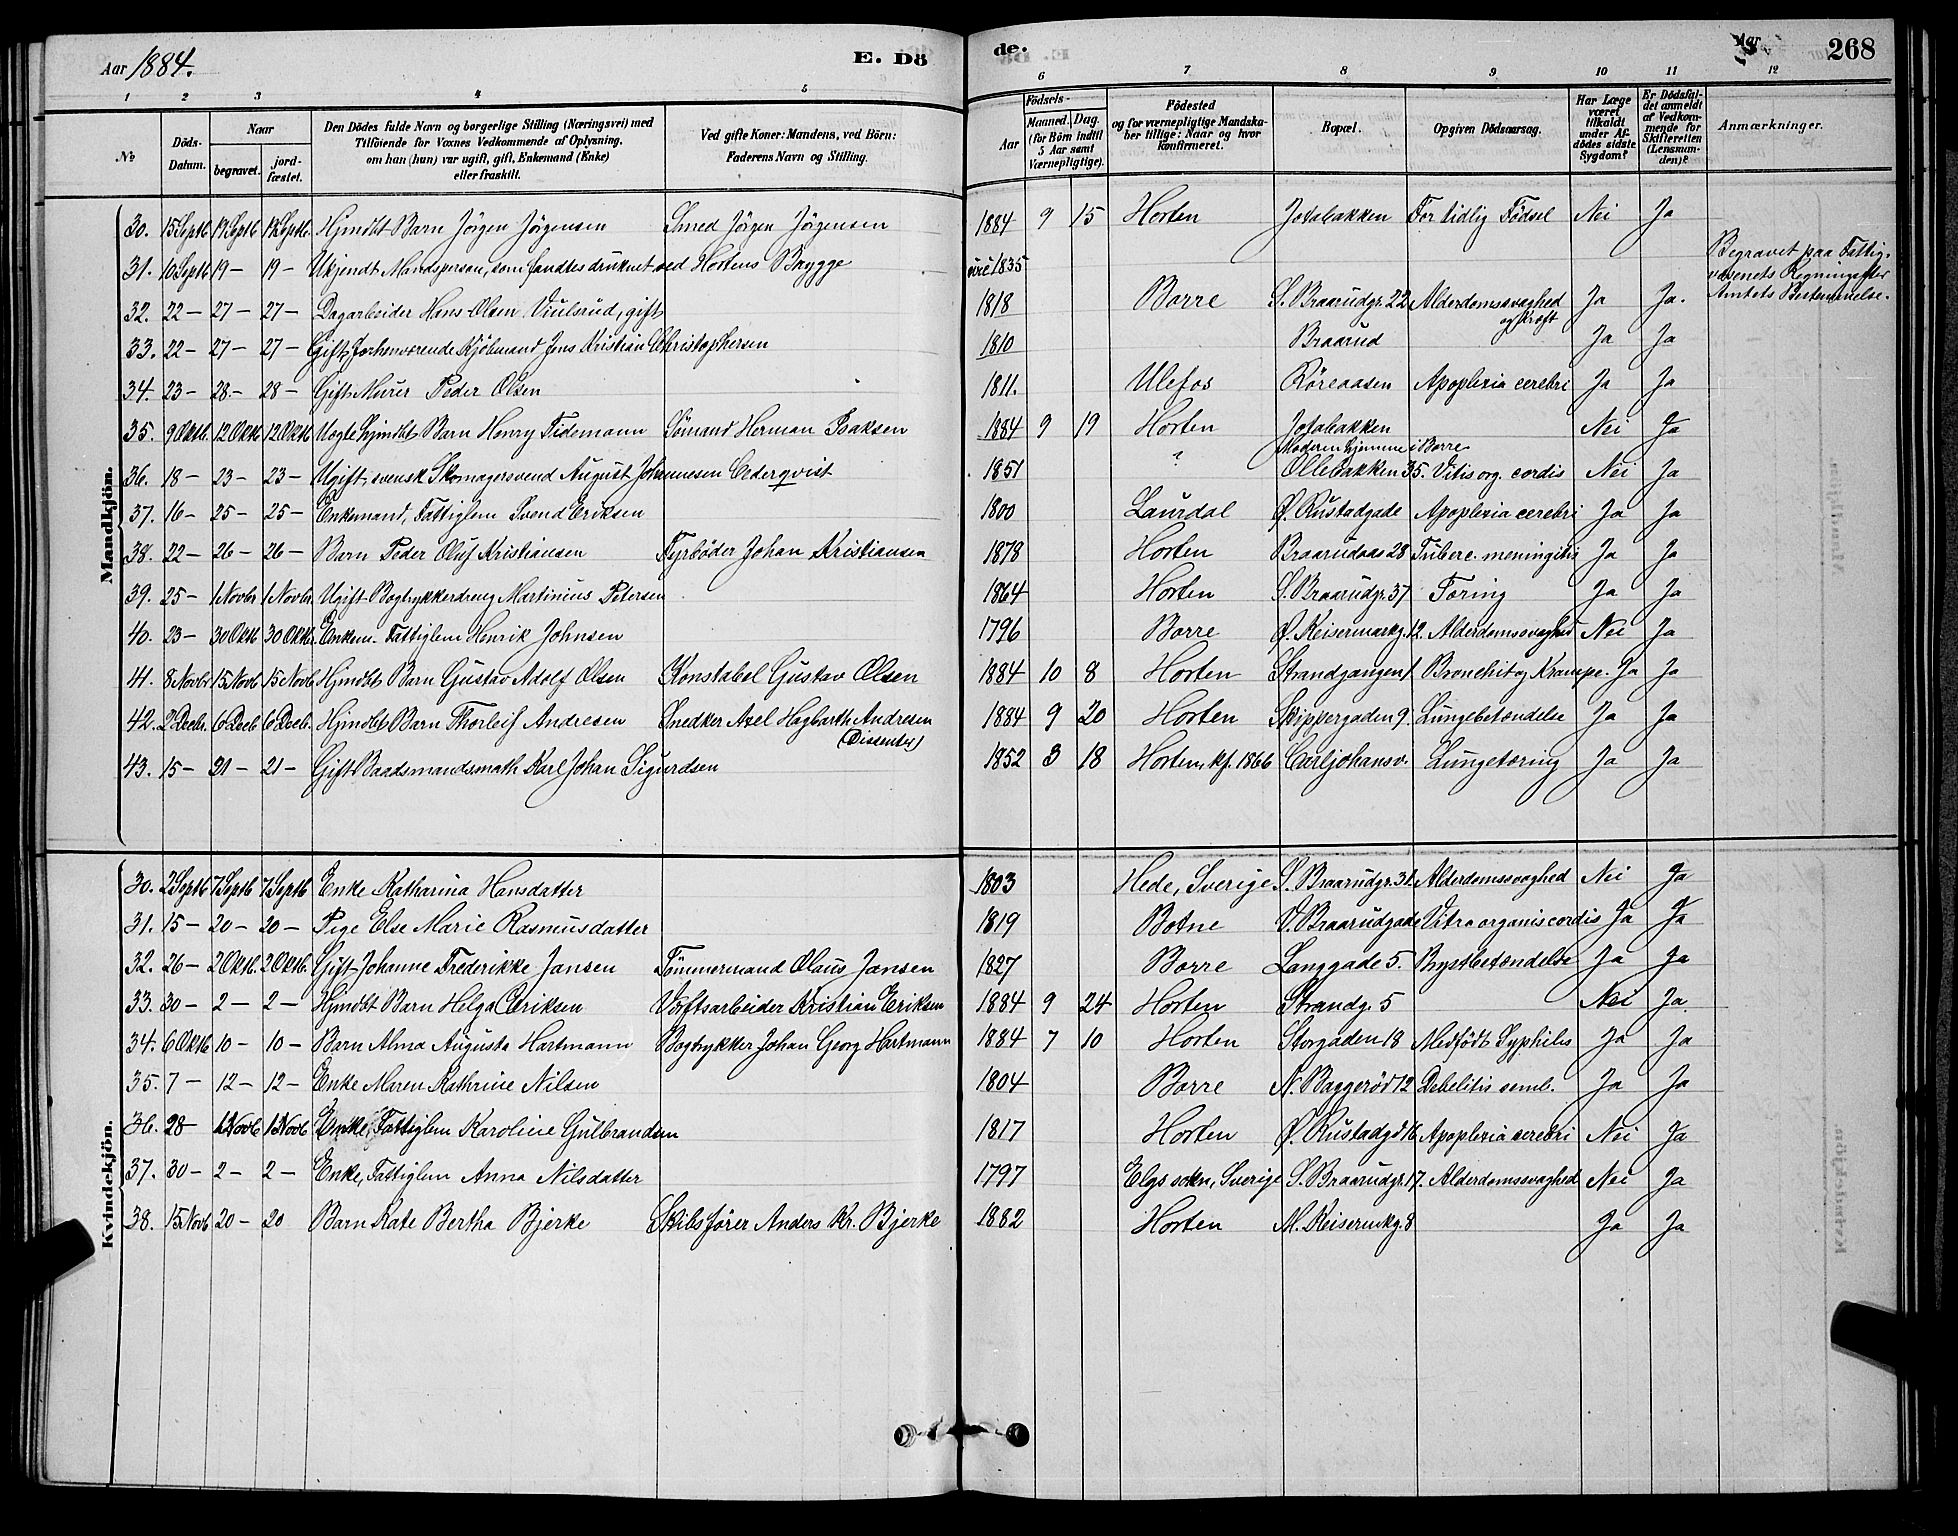 Aar 1884.
E. Dö
de.
Aar
268
1 2 3 4 5 6 7 8 9 10 11 12
No
Döds-Datum.
Naar
begravet.
jord-fæstet.
Den Dödes fulde Navn og borgerlige Stilling (Næringsvei) med
Tilföiende for Voxnes Vedkommende af Oplysning,
om han (hun) var ugift, gift, Enkemand (Enke)
eller fraskilt.
Ved gifte Koner: Mandens, ved Börn:
Faderens Navn og Stilling.
Födsels-
Aar
Maaned. Dag.
(for Börn indtil
5 Aar samt
Værnepligtige).
Födested
og for værnepligtige Mandska-
ber tillige: Naar og hvor
konfirmeret.
Bopæl.
Opgiven Dödsaarsag.
Har Læge
været
tilkaldt
under Af-
dödes sidste
Sygdom?
Er Dödsfal-
det anmeldt
af Vedkom-
mende for
Skifteretten
(Lensman-
den)?
Anmærkninger.
Mandkjön.
30. 15 Septb 19 Septb 19 Septb. Hjmdbt Barn Jörgen Jörgensen Smed Jörgen Jörgensen 1884 9 15 Horten Jotabakken For tidlig Födsel Nei Ja
31. 10 Septb 19 — 19 — Ukjendt Mandsperson, som fandtes druknet ved Hortens Brygge circ 1835 Begravet paa Fattig-
væsenets Regning efter
Amtets Bestemmelse.
32. 22 — 27 — 27 — Dagarbeider Hans Olsen Viulsrud, gift 1818 Borre S. Braarudgr. 22 Alderdomssvaghed og Kræft Ja Ja.
33. 22 — 27 — 27 — Gift, forhenværende Kjöbmand Jens Kristian Christophersen 1810 Braarud Ja Ja
34. 23 — 28 — 28 — Gift Murer Peder Olsen 1811. Ulefos Röreaasen Apoplexia cerebri Ja Ja
35. 9 Oktb. 12 Oktb 12 Oktb Uægte hjmdbt Barn Henry Tidemann Sömand Herman Isaksen 1884 9 19 Horten Jotabakken Moderens hjemme i Borre Nei Ja
36. 18 — 23 — 23 — Ugift, svensk Skomagersvend August Johannesen Cederqvist 1851 ? Ollebakken 35. Vitis org. cordis Nei Ja
37. 16 — 25 — 25 — Enkemand, Fattiglem Svend Eriksen 1800 Laurdal Ø. Rustadgade Apoplexia cerebri Ja Ja
38. 22 — 26 — 26 — Barn Peder Oluf Kristiansen Fyrböder Johan Kristiansen 1878 Horten Braarudaas 28 Tuberc. meningitis Ja Ja
39. 25 — 1 Novbr 1 Novbr. Ugift Bogtrykkerdreng Martinius Petersen 1864 Horten S. Braarudgr. 37 Tæring Ja Ja
40. 23 — 30 Oktb 30 Oktb. Enkem. Fattiglem Henrik Johnsen 1796 Borre Ø. Keisermarkg. 12. Alderdomssvaghed Nei Ja
41. 8 Novbr 15 Novb 15 Novb. Hjmdbt Barn Gustav Adolf Olsen Konstabel Gustav Olsen 1884 10 8 Horten Strandgangen 1 Bronchit og Krampe. Ja Ja
42. 2 Decbr. 6 Decb 6 Decb. Hjmdbt Barn Thorleif Andresen Snedker Axel Hagbarth Andresen (Dissenter) 1884 9 20 Horten Skippergaden 9 Lungebetændelse Ja Ja
43. 15 — 21 — 21 — Gift Baadsmandsmath Karl Johan Sigurdsen 1852 3 18 Horten, kf. 1866 Carljohansv. Lungetæring Ja Ja
Kvindekjön.
30. 2 Septb 7 Septb 7 Septb Enke Katharina Hansdatter 1803 Hede, Sverige S. Braarudgr. 31. Alderdomssvaghed Nei Ja
31. 15 — 20 — 20 — Pige Else Marie Rasmusdatter 1819 Botne V. Braarudgade Vitra organis cordis Ja Ja
32. 26 — 2 Oktb. 2 Oktb. Gift Johanne Frederikke Jansen Tömmermand Olaus Jansen 1827 Borre Langgade 5. Brystbetændelse Ja Ja
33. 30 — 2 — 2 — Hjmdbt Barn Helga Eriksen Værftsarbeider Kristian Eriksen 1884 9 24 Horten Strandg. 5 Nei Ja
34. 6 Oktb 10 — 10 — Barn Alma Augusta Hartmann Bogtrykker Johan Georg Hartmann 1884 7 10 Horten Storgaden 18 Medfödt Syphilis Ja Ja
35. 7 — 12 — 12 — Enke Maren Kathrine Nilsen 1804 Borre N. Baggeröd 12 Debelitis senil. Ja Ja
36. 28 — 1 Novb 1 Novb Enke, Fattiglem Karoline Gulbrandsen 1817 Horten Ø. Rustadgd 16 Apoplexia serebri Nei Ja
37. 30 — 2 — 2 — Enke, Fattiglem Anna Nilsdatter 1797 Elgs sokn, Sverige S. Braarudgr. 17. Alderdomssvaghed Nei Ja
38. 15 Novb 20 — 20 Barn Kate Bertha Bjerke Skibsförer Anders Kr. Bjerke 1882 Horten M. Keisermkg. 8 Ja Ja